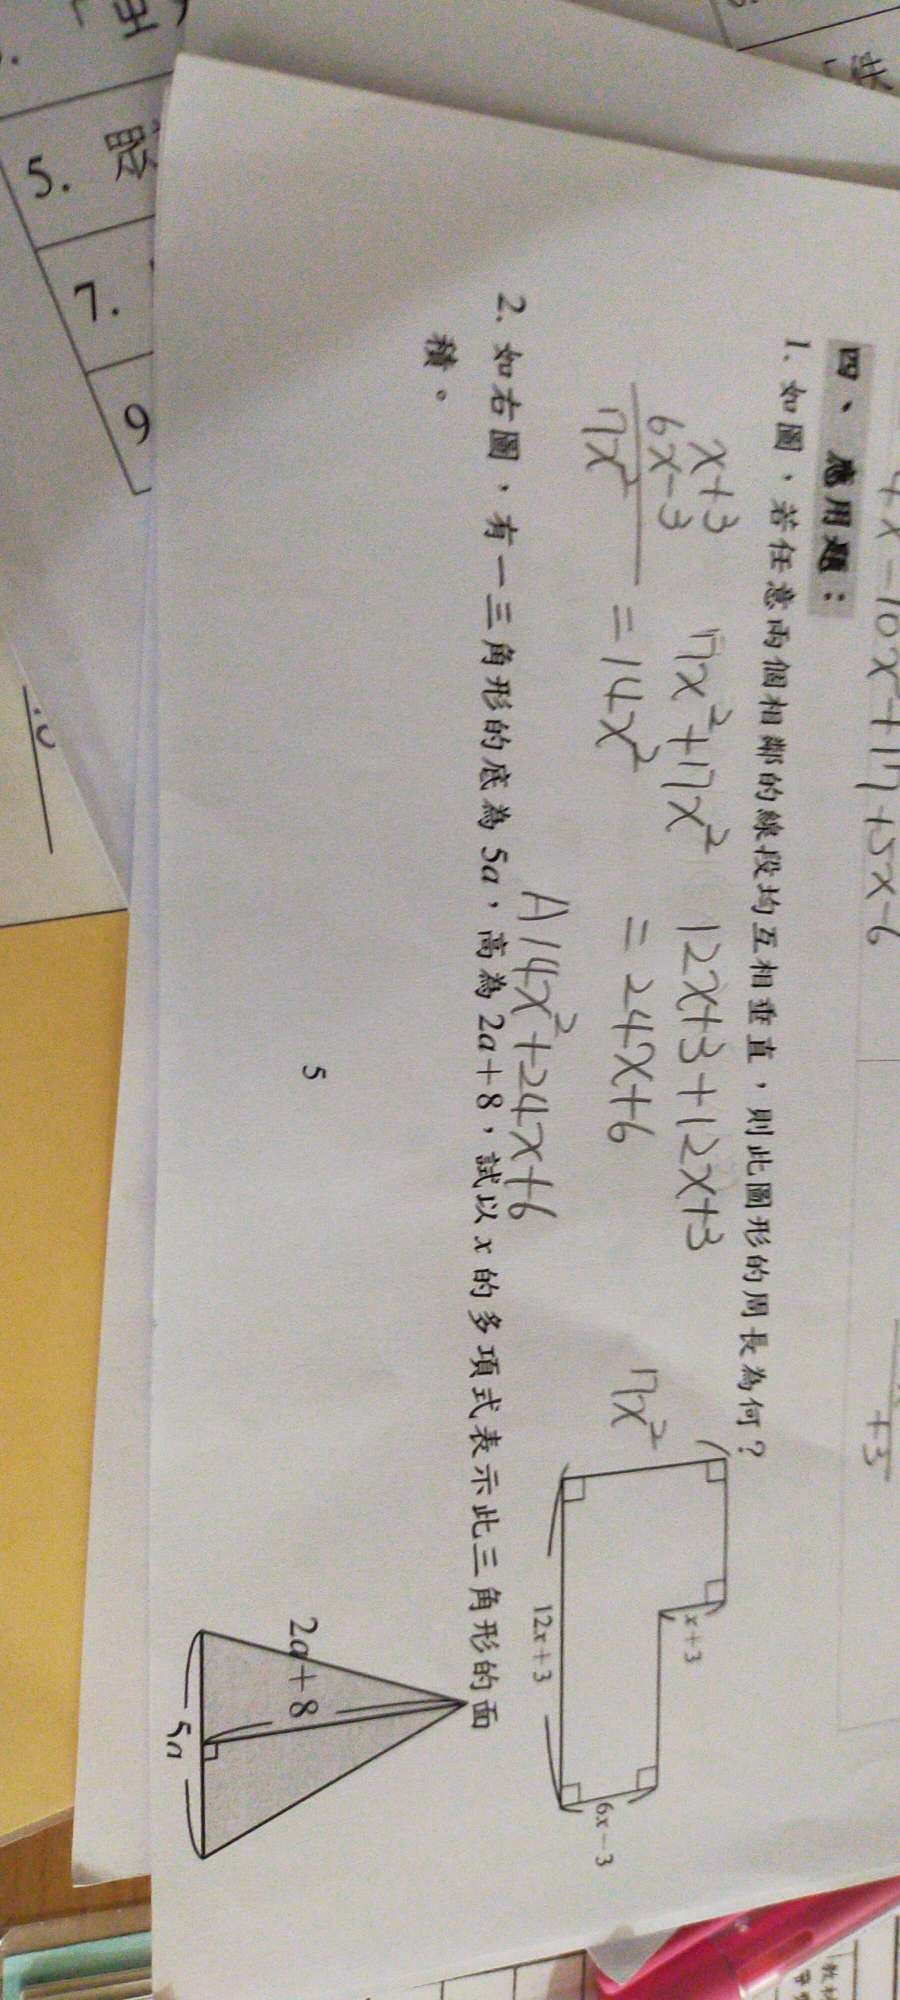 4x-10x²+17+5x-6
+3
四、應用題：
1. 如圖，若任意兩個相鄰的線段均互相垂直，則此圖形的周長為何？
x+3
6x-3
7x²
7x²+7x²
=14x²
12x+3+12x+3
=24x+6
A 14x²+24x+6
7x²
x+3
12x+3
6x-3
2. 如右圖，有一三角形的底為 5a，高為 2a+8，試以 x 的多項式表示此三角形的面
積。
2a+8
5a
5
5.
7.
9